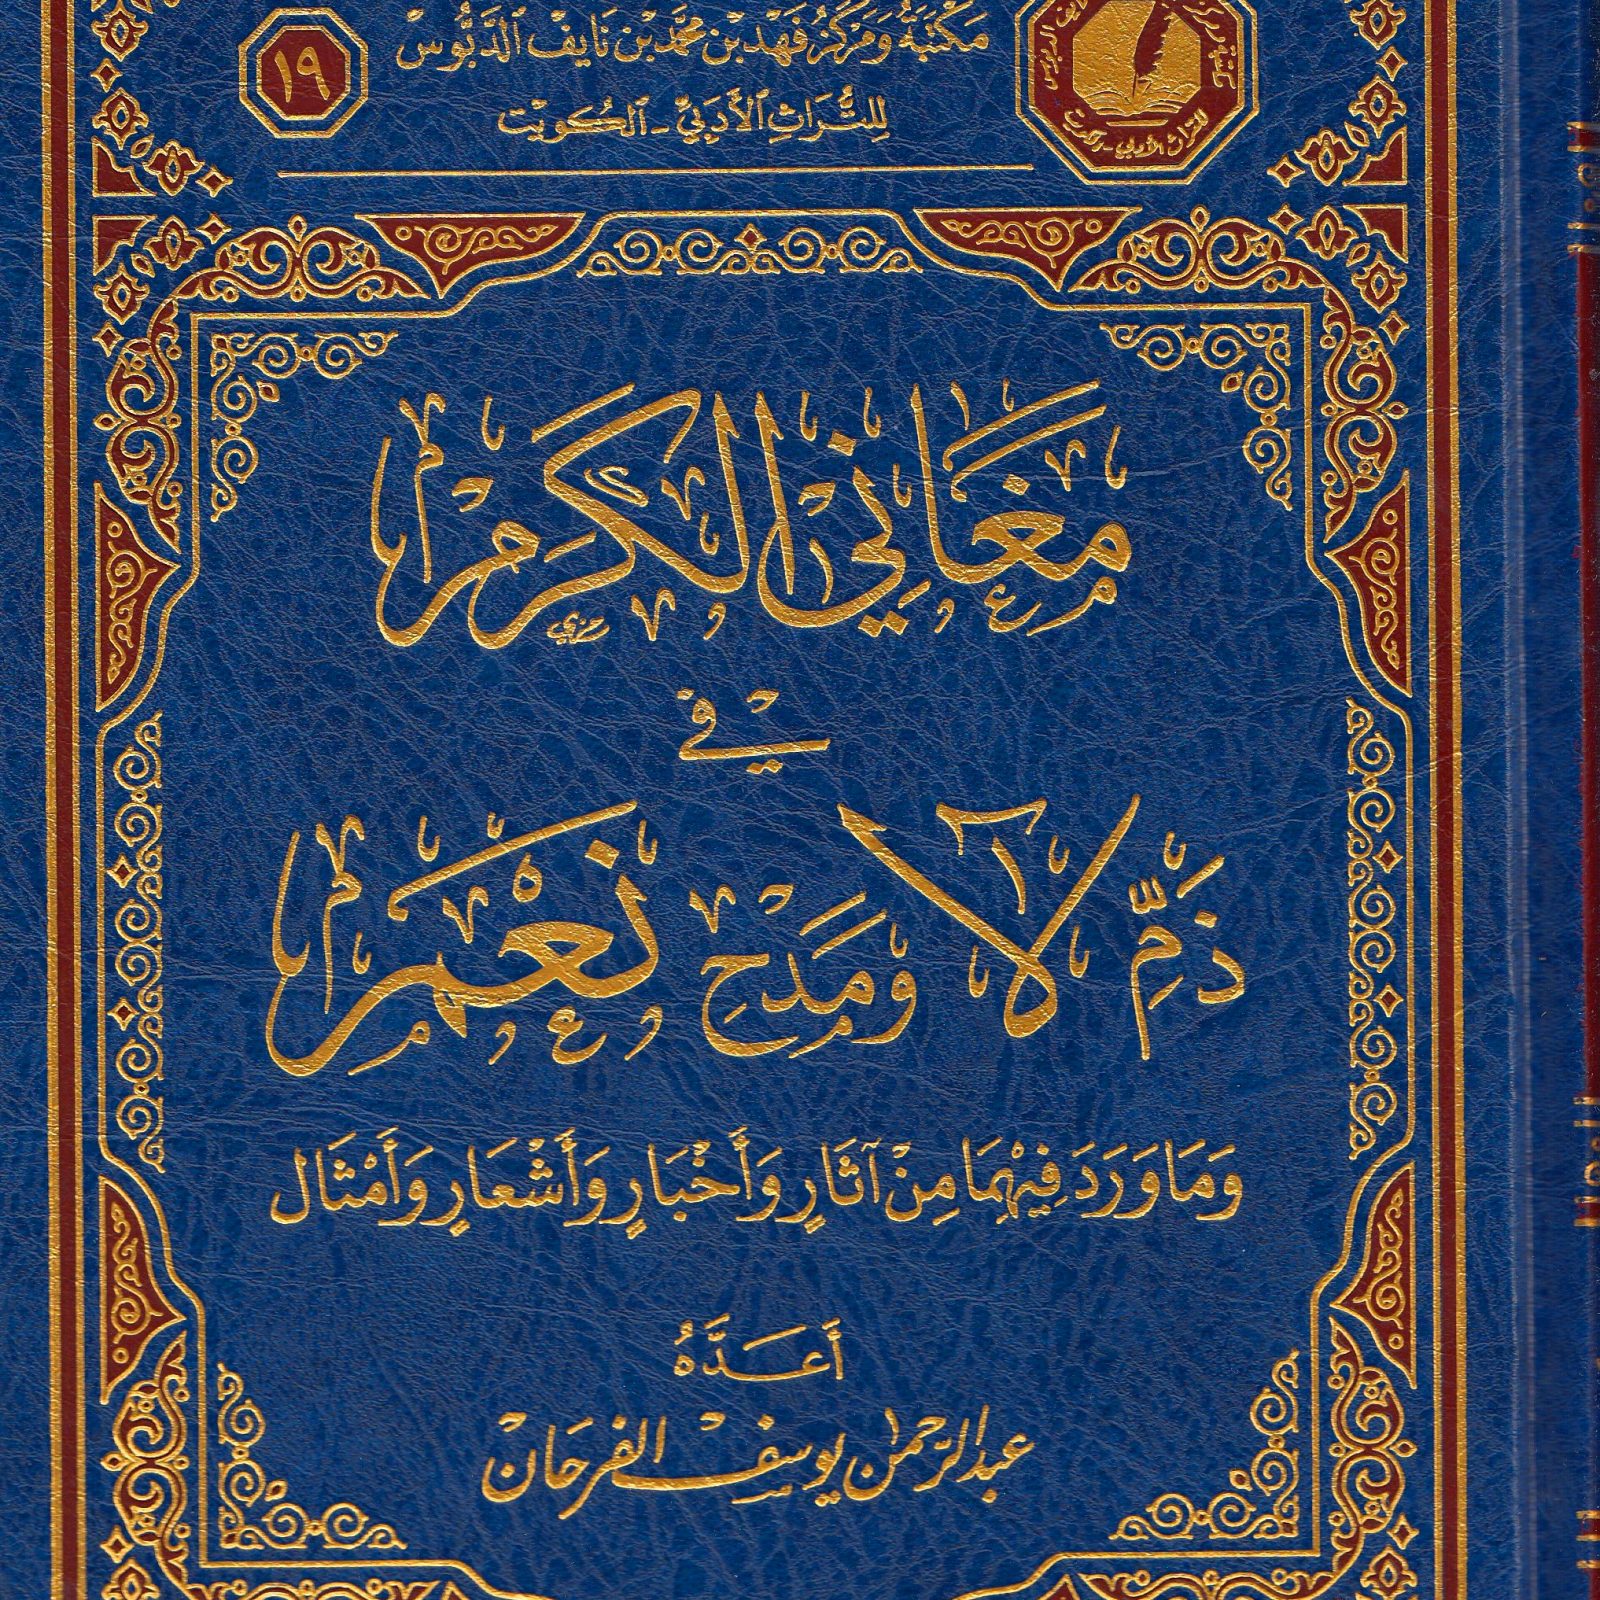 مَكْتَبَةُ وَمَرْكَزُ فَهْدِ بْنِ مُحَمَّدِ بْنِ نَايِفْ الدَّبُّوسْ
لِلتُّرَاثِ الْأَدَبِيِّ - الكُوَيْت
١٩
مَغَانِي الكَرَمِ
فِي
ذَمِّ لَا وَمَدْحِ نَعَمْ
وَمَا وَرَدَ فِيْهِمَا مِنْ آثَارٍ وَأَخْبَارٍ وَأَشْعَارٍ وَأَمْثَال
أَعَدَّهُ
عبدالرحمن يوسف الفرحان